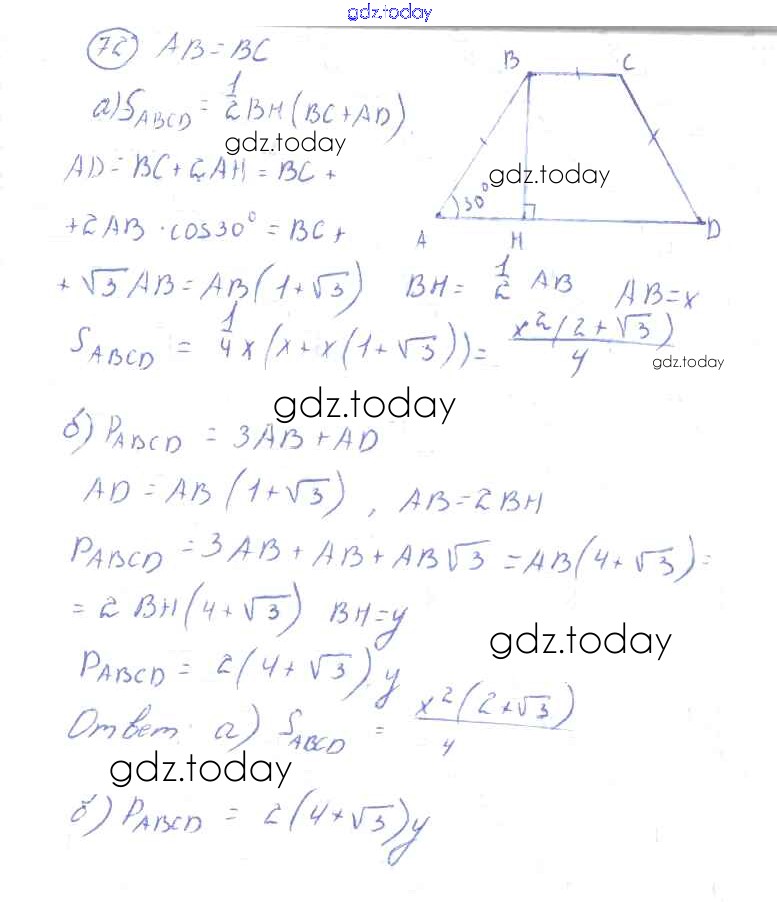 gdz.today
72 AB = BC
B C
а) S_ABCD = 1/2 BH (BC + AD)
gdz.today
AD = BC + 2AH = BC +
gdz.today
30°
+ 2AB · cos30° = BC +
A H D
+ √3 AB = AB (1 + √3) BH = 1/2 AB AB = x
S_ABCD = 1/4 x (x + x (1 + √3)) = x²(2 + √3)/4
gdz.today
gdz.today
б) P_ABCD = 3AB + AD
AD = AB (1 + √3), AB = 2BH
P_ABCD = 3AB + AB + AB√3 = AB (4 + √3) =
= 2BH (4 + √3) BH = y
gdz.today
P_ABCD = 2(4 + √3) y
Ответ: а) S_ABCD = x²(2 + √3)/4
gdz.today
б) P_ABCD = 2(4 + √3) y